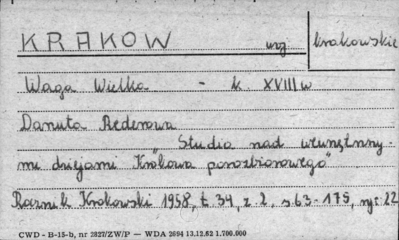 KRAKOW woj. krakowskie
Waga Wielka - k. XVIII w
Danuta Rederowa
"Studia nad wewnętrzny-
mi dziejami Krakowa porozbiorowego"
Rocznik Krakowski 1958, t. 34, z. 2, s. 63-175, ryc. 22
CWD - B-15-b, nr 2827/ZW/P — WDA 2694 13.12.62 1.700.000